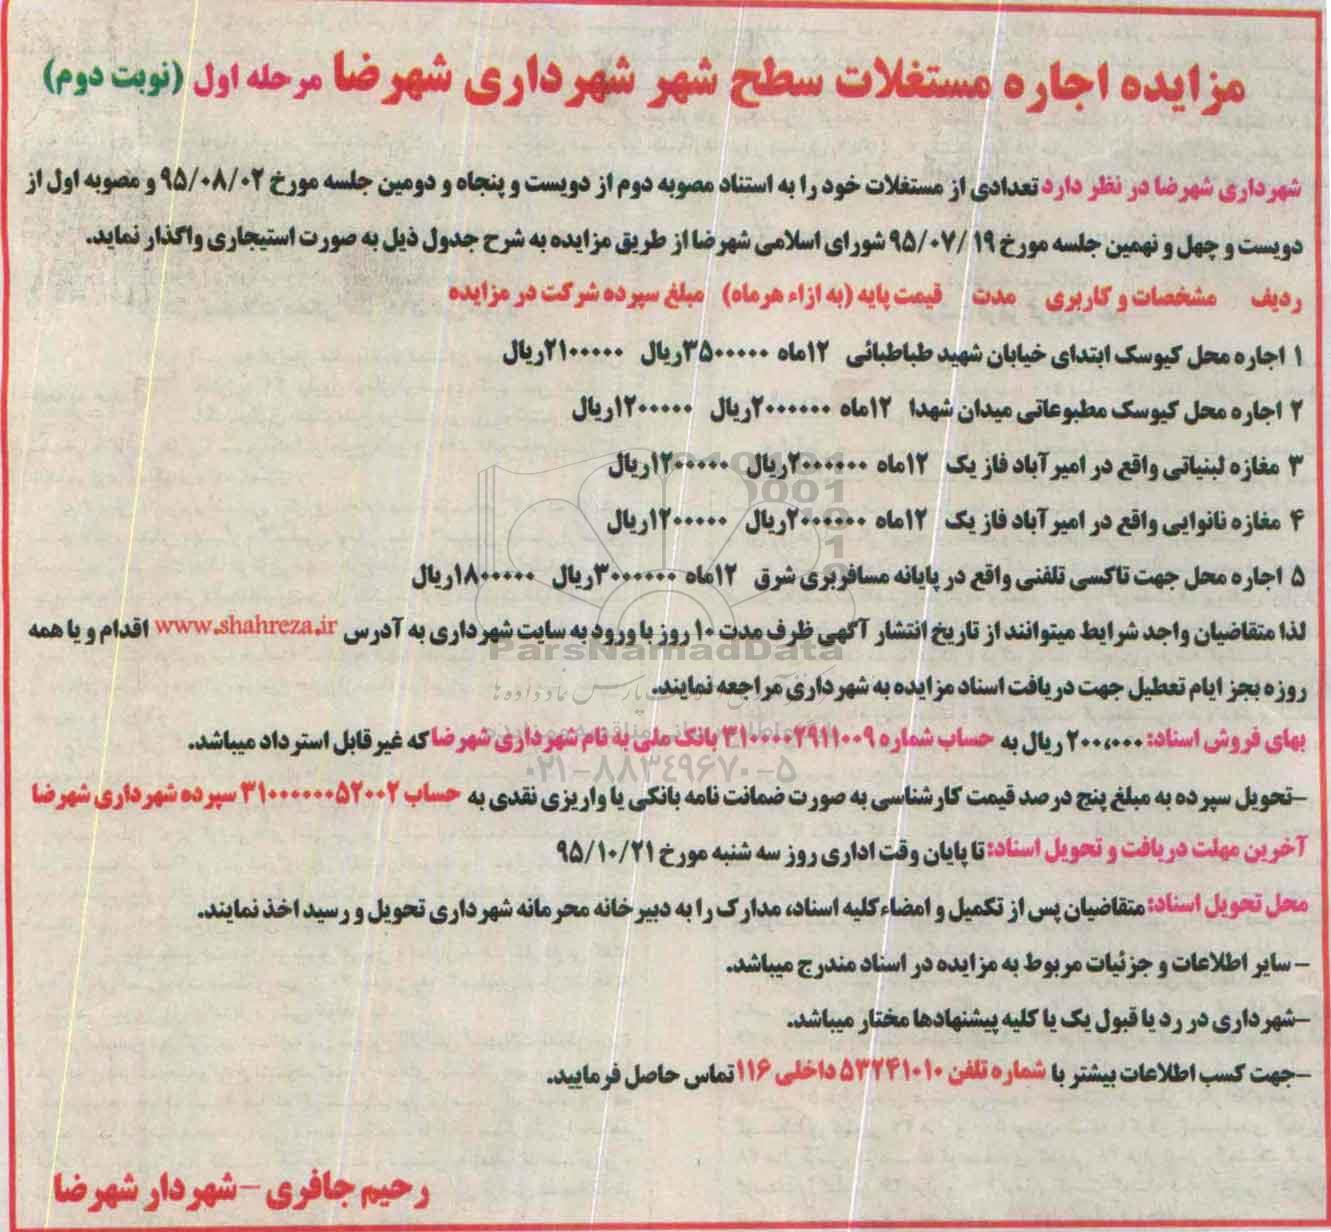 مزایده اجاره مستغلات سطح شهر شهرداری شهرضا مرحله اول (نوبت دوم)
شهرداری شهرضا در نظر دارد تعدادی از مستغلات خود را به استناد مصوبه دوم از دویست و پنجاه و دومین جلسه مورخ ۹۵/۰۸/۰۲ و مصوبه اول از
دویست و چهل و نهمین جلسه مورخ ۹۵/۰۷/۱۹ شورای اسلامی شهرضا از طریق مزایده به شرح جدول ذیل به صورت استیجاری واگذار نماید.
ردیف مشخصات و کاربری مدت قیمت پایه (به ازاء هرماه) مبلغ سپرده شرکت در مزایده
۱ اجاره محل کیوسک ابتدای خیابان شهید طباطبائی ۱۲ماه ۳۵۰۰۰۰۰ریال ۲۱۰۰۰۰۰ریال
۲ اجاره محل کیوسک مطبوعاتی میدان شهدا ۱۲ماه ۲۰۰۰۰۰۰ریال ۱۲۰۰۰۰۰ریال
۳ مغازه لبنیاتی واقع در امیرآباد فاز یک ۱۲ماه ۲۰۰۰۰۰۰ریال ۱۲۰۰۰۰۰ریال
۴ مغازه نانوایی واقع در امیرآباد فاز یک ۱۲ماه ۲۰۰۰۰۰۰ریال ۱۲۰۰۰۰۰ریال
۵ اجاره محل جهت تاکسی تلفنی واقع در پایانه مسافربری شرق ۱۲ماه ۳۰۰۰۰۰۰ریال ۱۸۰۰۰۰۰ریال
لذا متقاضیان واجد شرایط میتوانند از تاریخ انتشار آگهی ظرف مدت ۱۰ روز با ورود به سایت شهرداری به آدرس www.shahreza.ir اقدام و یا همه
ParsNamadData
روزه بجز ایام تعطیل جهت دریافت اسناد مزایده به شهرداری مراجعه نمایند.
بهای فروش اسناد: ۲۰۰،۰۰۰ ریال به حساب شماره ۳۱۰۰۰۰۲۹۱۱۰۰۹ بانک ملی به نام شهرداری شهرضا که غیرقابل استرداد میباشد.
۰۲۱-۸۸۳۴۹۶۷۰-۵
-تحویل سپرده به مبلغ پنج درصد قیمت کارشناسی به صورت ضمانت نامه بانکی یا واریزی نقدی به حساب ۳۱۰۰۰۰۰۰۵۲۰۰۲ سپرده شهرداری شهرضا
آخرین مهلت دریافت و تحویل اسناد: تا پایان وقت اداری روز سه شنبه مورخ ۹۵/۱۰/۲۱
محل تحویل اسناد: متقاضیان پس از تکمیل و امضاء کلیه اسناد، مدارک را به دبیرخانه محرمانه شهرداری تحویل و رسید اخذ نمایند.
- سایر اطلاعات و جزئیات مربوط به مزایده در اسناد مندرج میباشد.
-شهرداری در رد یا قبول یک یا کلیه پیشنهادها مختار میباشد.
-جهت کسب اطلاعات بیشتر با شماره تلفن ۵۳۲۴۱۰۱۰ داخلی ۱۱۶ تماس حاصل فرمایید.
رحیم جافری - شهردار شهرضا